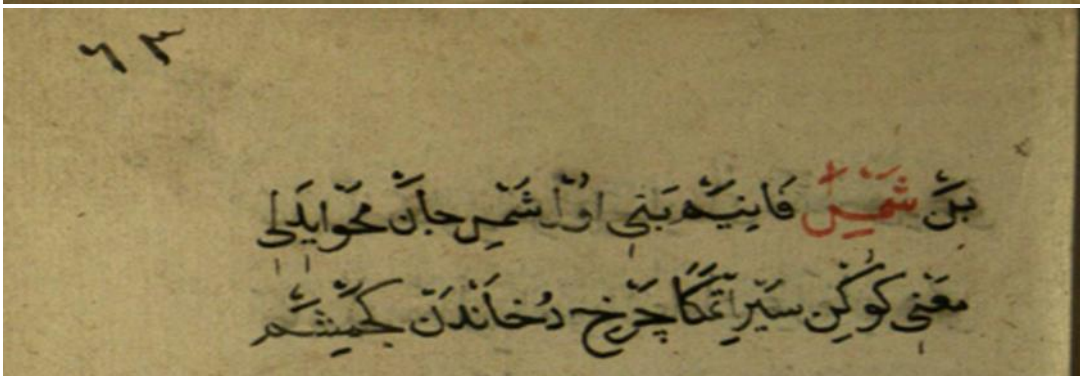 ٦٣
بن شمس فانيم بنى اول شمس جان محو ايلدى
معنى كوكن سير اتمكا چرخ دخاندن كچمشم